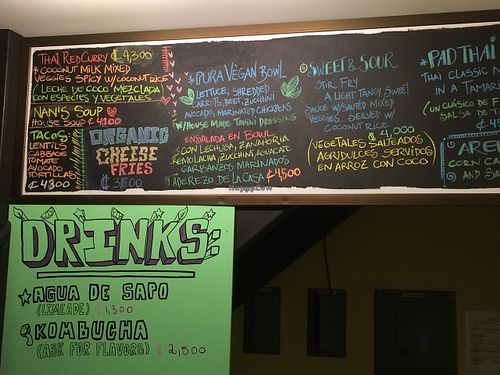 THAI RED CURRY ₡4300
* COCONUT MILK MIXED
VEGGIES SPICY W/COCONUT RICE
LECHE DE COCO MEZCLADA
CON ESPECIES Y VEGETALES
NAN'S SOUP
HOUSE SOUP ₡4100
TACOS:
LENTILS
CABBAGE
TOMATE
AVOCADO
TORTILLAS
₡4300
ORGANIC
CHEESE
FRIES
* PURA VEGAN BOWL
LETTUCE, SHREDDED
CARROTS, BEET, ZUCHINI
AVOCADO, MARINATED CHICKPEAS
W/HOUSE MADE TAHINI DRESSING
ENSALADA EN BOWL
CON LECHUGA, ZANAHORIA
REMOLACHA, ZUCHINI, AGUACATE
GARBANZOS MARINADOS
Y ADEREZO DE LA CASA ₡4500
SWEET & SOUR
STIR FRY
A LIGHT TANGY SWEET
SAUCE W/SAUTEED MIXED
VEGGIES SERVED W/
COCONUT RICE
₡4,000
(VEGETALES SALTEADOS
AGRIDULCES SERVIDOS
EN ARROZ CON COCO)
* PAD THAI
THAI CLASSIC
IN A TAMAR
(UN CLÁSICO DE
SALSA DE T
AREP
CORN CA
AND SA
DRINKS:
AGUA DE SAPO
(LIMEADE) ₡1,300
KOMBUCHA
(ASK FOR FLAVORS) ₡2,500